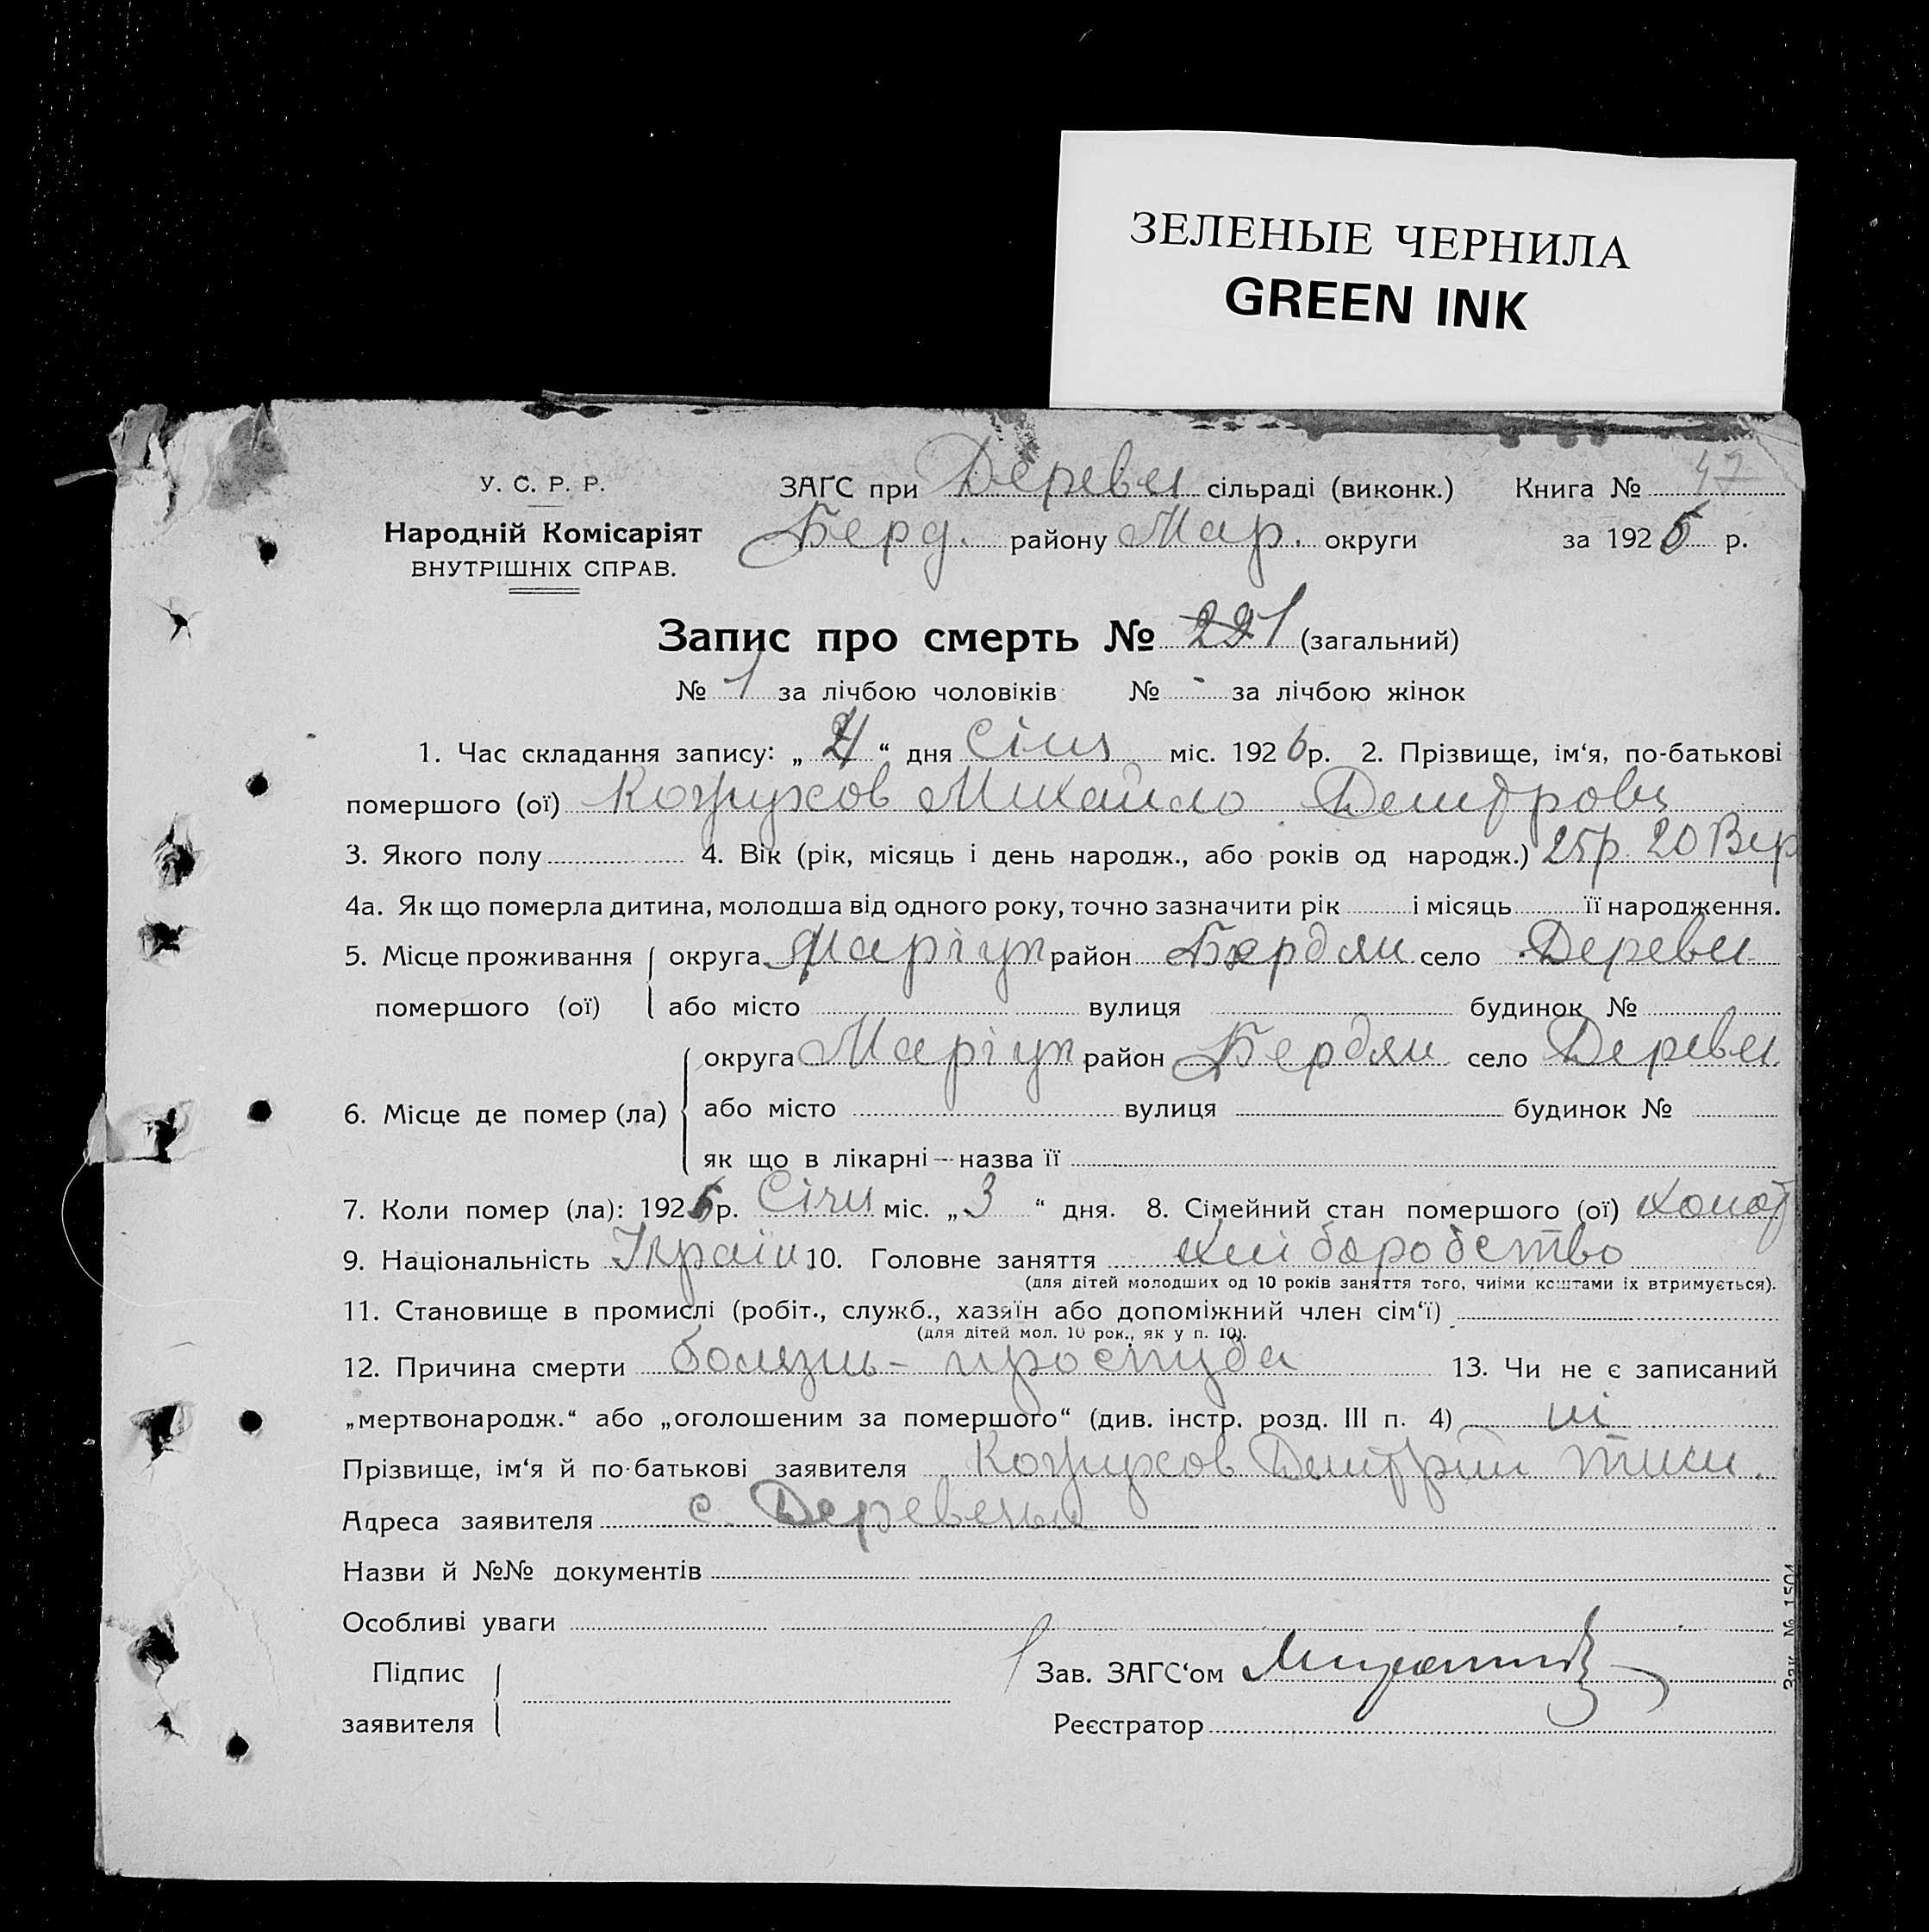 ЗЕЛЕНЫЕ ЧЕРНИЛА
GREEN INK
У. С. Р. Р.
Народній Комісаріят
ВНУТРІШНІХ СПРАВ.
ЗАГС при Дереве сільраді (виконк.) Книга № 47
Берд. району Мар. округи за 1926 р.
Запис про смерть № 1 (загальний)
№ 1 за лічбою чоловіків № - за лічбою жінок
1. Час складання запису: „ 4 “ дня Січня міс. 1926 р. 2. Прізвище, ім‘я, по-батькові
помершого (ої) Кожухов Михайло Дмитрович
3. Якого полу 4. Вік (рік, місяць і день народж., або років од народж.) 25р. 20 Вер
4а. Як що померла дитина, молодша від одного року, точно зазначити рік і місяць її народження.
5. Місце проживання округа Маріуп район Бердян село Дереве
помершого (ої) або місто вулиця будинок №
округа Маріуп район Бердян село Дереве
6. Місце де помер (ла) або місто вулиця будинок №
як що в лікарні—назва її
7. Коли помер (ла): 1926 р. Січн міс. „ 3 “ дня. 8. Сімейний стан помершого (ої) холост
9. Національність Україн 10. Головне заняття хліборобство
(для дітей молодших од 10 років заняття того, чиїми коштами їх втримується).
11. Становище в промислі (робіт., служб., хазяїн або допоміжний член сім‘ї)
(для дітей мол. 10 рок., як у п. 10).
12. Причина смерти болязнь - простуда 13. Чи не є записаний
„мертвонародж.“ або „оголошеним за помершого“ (див. інстр. розд. III п. 4) ні
Прізвище, ім‘я й по-батькові заявителя Кожухов Дмитрій
Адреса заявителя с.
Назви й №№ документів
Особливі уваги
Підпис
заявителя
Зав. ЗАГС‘ом
Реєстратор
Зак. № 1504